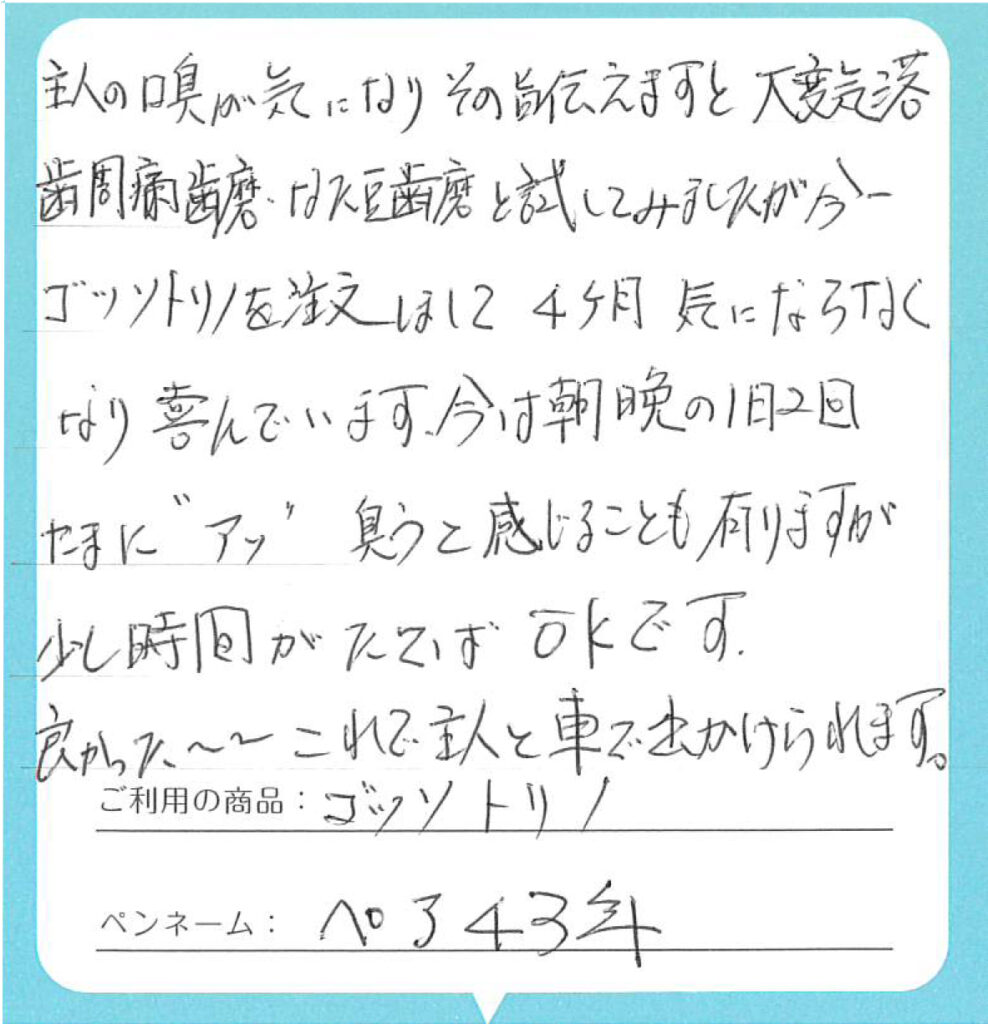 主人の口臭が気になりその旨伝えますと大変気落
歯周病歯磨、なた豆歯磨と試してみましたが今一
ゴッソトリノを注文しまして4ケ月 気にならなく
なり喜んでいます、今は朝晩の1日2回
たまに"アッ"臭うと感じることも有りますが
少し時間がたてばOKです.
良かった〜〜これで主人と車で出かけられます。
ご利用の商品：ゴッソトリノ
ペンネーム：ペア43年